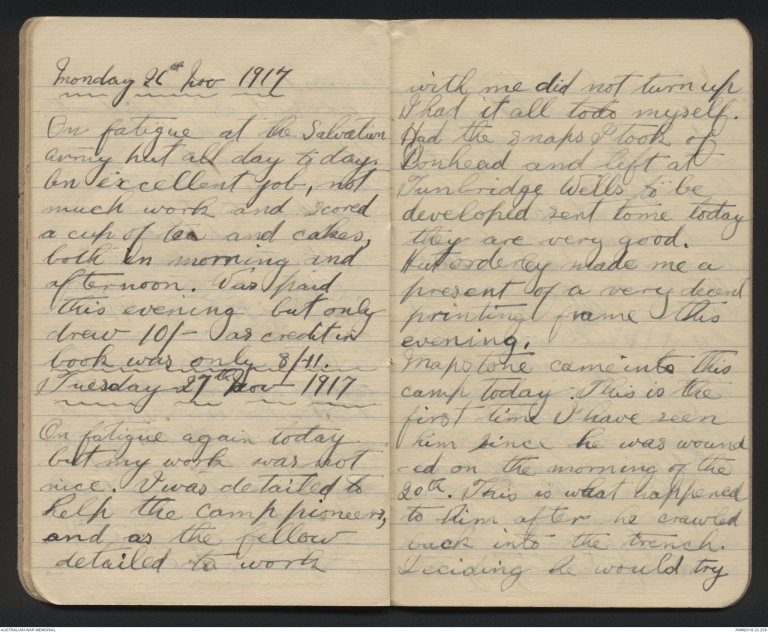 Monday 26th Nov 1917
On fatigue at the Salvation
army hut all day to day.
An excellent job, not
much work and scored
a cup of tea and cakes,
both in morning and
afternoon. Was paid
this evening but only
drew 10/- as credit in
book was only 8/11.
Tuesday 27th Nov 1917
On fatigue again today
but my work was not
nice. I was detailed to
help the camp pioneers,
and as the fellow
detailed to work
with me did not turn up
I had it all to do myself.
Had the snaps I took of
Bonhead and left at
Tunbridge Wells to be
developed sent to me today
they are very good.
Hut orderley made me a
present of a very decent
printing frame this
evening.
Mapstone came into this
camp today. This is the
first time I have seen
him since he was wound
-ed on the morning of the
20th. This is what happened
to him after he crawled
back into the trench.
Deciding he would try
AUSTRALIAN WAR MEMORIAL